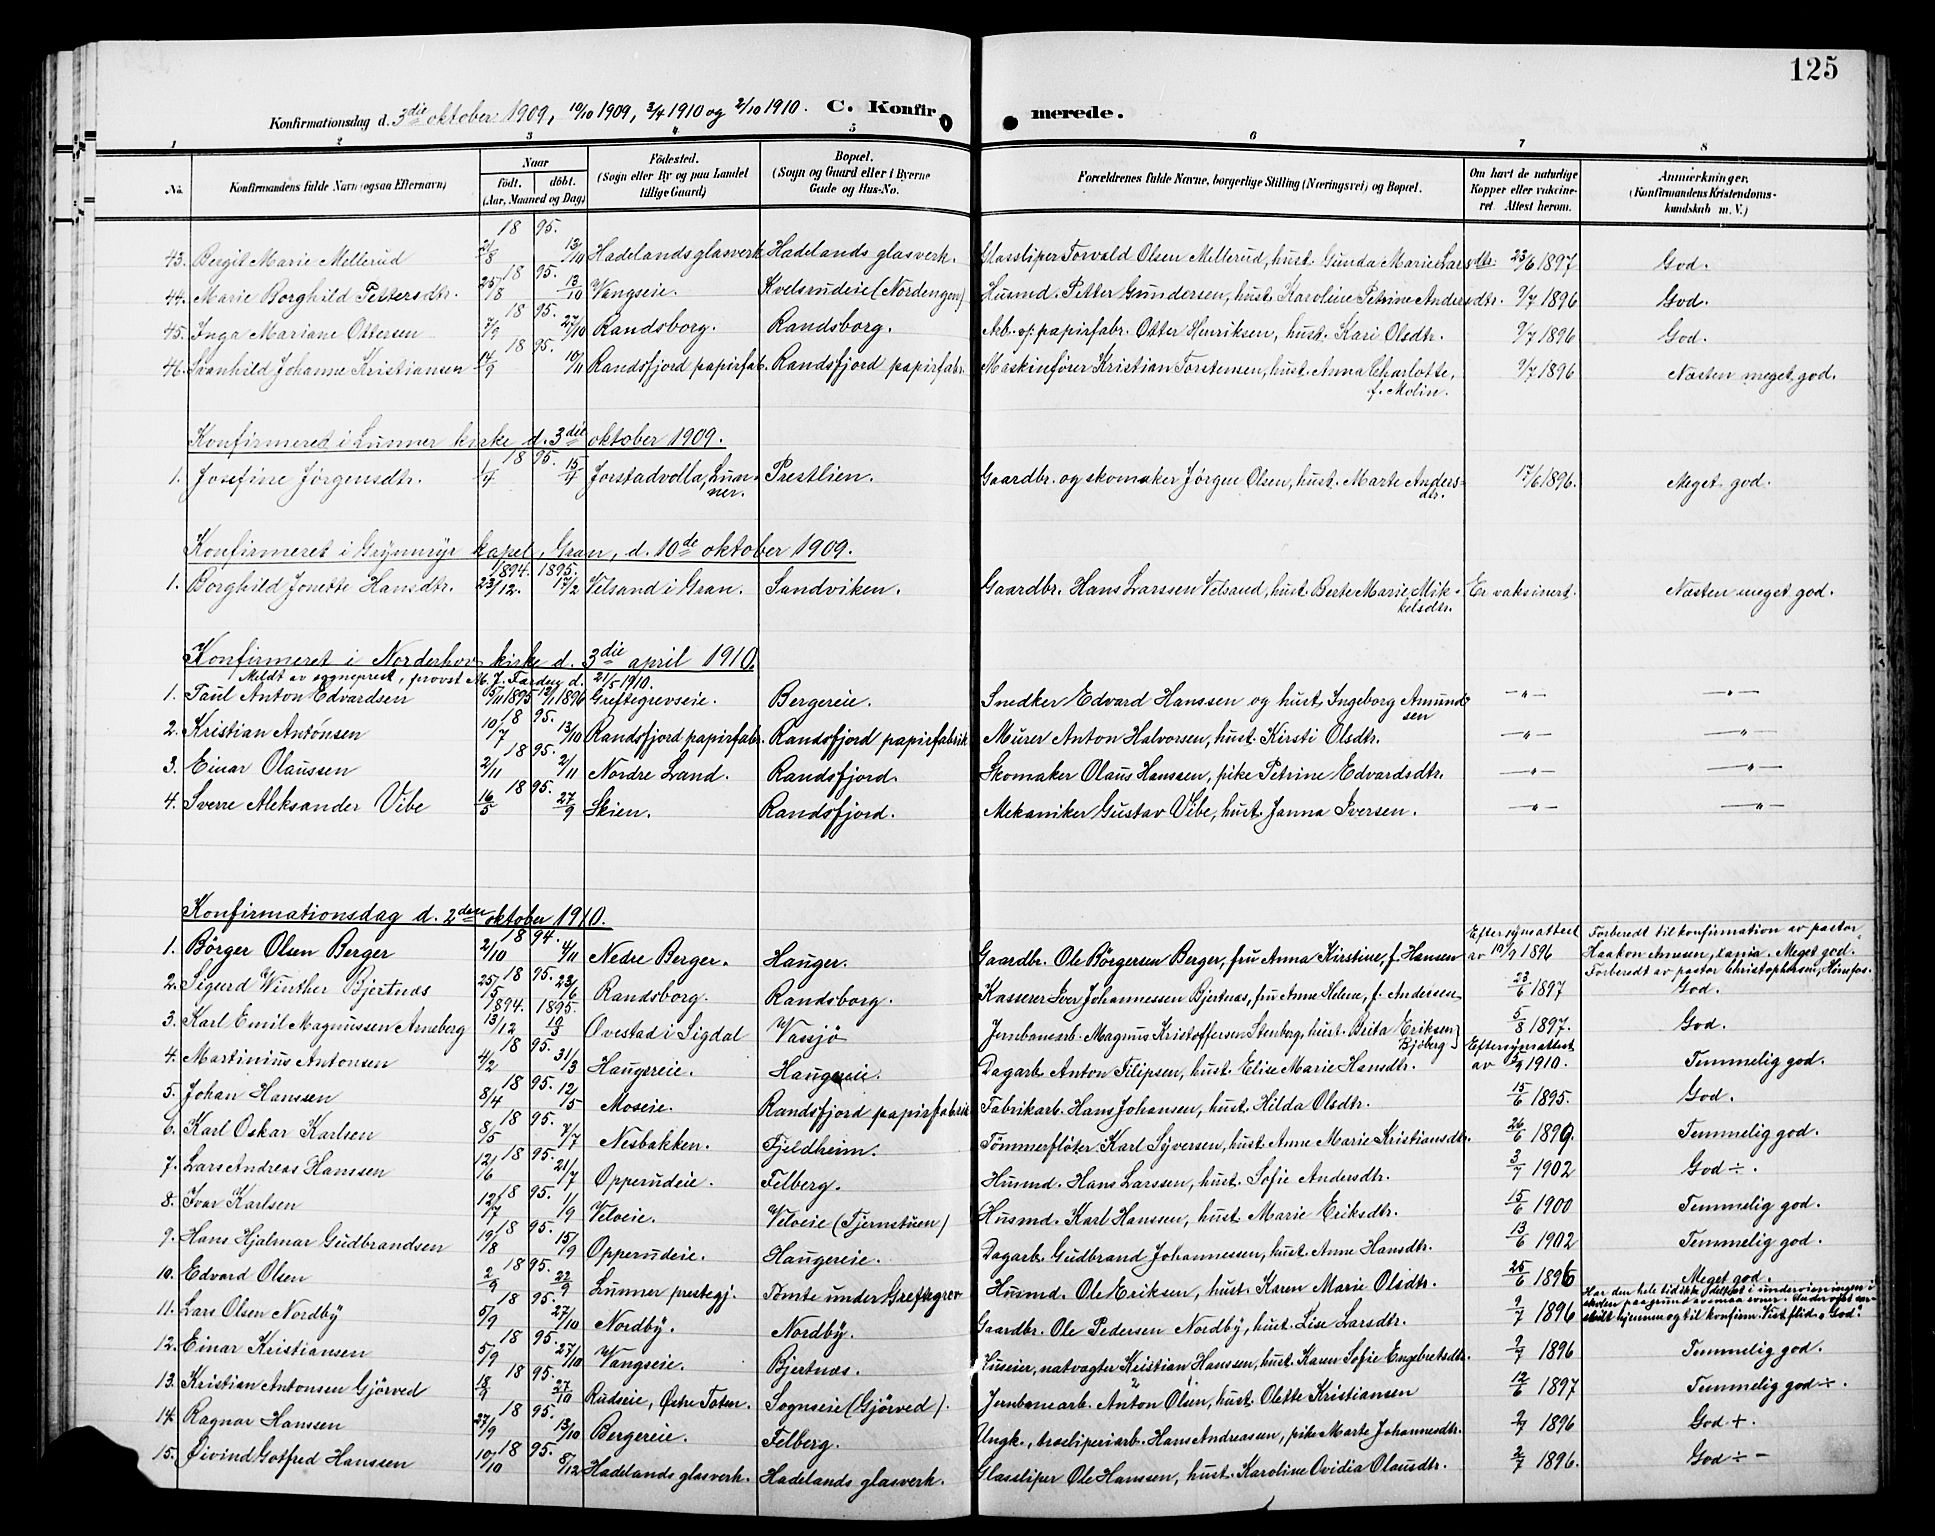 125
Konfirmationsdag d. 3die oktober 1909, 10/10 1909, 3/4 1910 og 2/10 1910. C. Konfirmerede.
1 2 3 4 5 6 7 8
No. Konfirmandens fulde Navn (ogsaa Efternavn) Naar født. døbt. (Aar, Maaned og Dag) Fødested. (Sogn eller By og paa Landet tillige Gaard) Bopæl. (Sogn og Gaard eller i Byerne Gade og Hus-No. Forældrenes fulde Navne, borgerlige Stilling (Næringsvei) og Bopæl. Om havt de naturlige Kopper eller vakcineret. Attest herom. Anmærkninger. (Konfirmandens Kristendomskundskab m. V.)
43. Bergit Marie Mellerud 21/8 1895. 13/10 Hadelands glasverk Hadelands glasverk. Glassliper Torvald Olsen Mellerud, hust. Gunda Marie Larsdtr. 23/6 1897 God.
44. Marie Borghild Pettersdtr. 25/8 1895. 13/10 Vangseie. Kvelsrudeie (Nordengen) Husmd. Petter Gundersen, hust. Karoline Petrine Andersdtr. 9/7 1896 God.
45. Inga Mariane Ottersen 7/9 1895. 27/10 Randsborg. Randsborg. Arb. v/ papirfabr. Otter Henriksen, hust. Kari Olsdtr. 9/7 1896 God.
46. Svanhild Johanne Kristiansen 14/9 1895. 10/11 Randsfjord papirfab. Randsfjord papirfabr. Maskinfører Kristian Torstensen, hust. Anna Charlotte, f. Molin. 9/7 1896 Næsten meget god.
Konfirmeret i Lunner kirke d. 3die oktober 1909.
1. Josefine Jørgensdtr. 1/4 1895. 15/4 Jorstadvolla, Lunner. Prestlien. Gaardbr. og skomaker Jørgen Olsen, hust. Marte Andersdtr. 17/6 1896. Meget god.
Konfirmeret i Grymyr kapel, Gran, d. 10de oktober 1909.
1. Borghild Jonette Hansdtr. 1894. 23/12. 1895. 17/2 Velsand i Gran. Sandviken. Gaardbr. Hans Larssen Velsand, hust. Berte Marie Mikkelsdtr. Er vaksinert. Næsten meget god.
Konfirmeret i Norderhov kirke d. 3die april 1910.
Meldt av sogneprest, provst M. J. Færden d. 21/5 1910.
1. Paul Anton Edvardsen 15/11 1895 12/1 1896 Greftegrevseie. Bergereie. Snedker Edvard Hanssen og hust. Ingeborg Amundsen —"— —"—
2. Kristian Antonsen 10/7 1895. 13/10 Randsfjord papirfabr. Randsfjord papirfabrik Murer Anton Halvorsen, hust. Kirsti Olsdtr. —"— —"—
3. Einar Olaussen 2/11 1895. 2/11 Nordre Land. Randsfjord. Skomaker Olaus Hanssen, pike Petrine Edvardsdtr. —"— —"—
4. Sverre Aleksander Vibe 16/5 1895. 27/9 Skien. Randsfjord. Mekaniker Gustav Vibe, hust. Janna Iversen. —"— —"—
Konfirmationsdag d. 2den oktober 1910.
1. Børger Olsen Berger 2/10 1894. 4/11 Nedre Berger. Hauger. Gaardbr. Ole Børgersen Berger, fru Anna Kirstine, f. Hansen Efter synsattest av 19/9 1896 Forberedt til konfirmation av pastor Haakon Meget god.
2. Sigurd Winther Bjertnæs 25/5 1895. 23/6 Randsborg. Randsborg. Kasserer Iver Johannessen Bjertnæs, fru Anne Helene, f. Andersen 23/6 1897 Forberedt av pastor Christophersen, Hønefos. God.
3. Karl Emil Magnussen Arneberg 1894. 13/12 1895. 10/3 Ovestad i Sigdal Vassjø Jernbanearb. Magnus Kristoffersen Stenberg, hust. Brita Eriksen Bjøberg 5/8 1897. God.
4. Martinius Antonsen 4/2 1895. 31/3 Haugereie. Haugereie. Dagarb. Anton Filipsen, hust. Elise Marie Hansdtr. Efter synsattest av 5/9 1910. Temmelig god.
5. Johan Hanssen 8/4 1895. 12/5 Moseie. Randsfjord papirfabrik Fabrikarb. Hans Johansen, hust. Hilda Olsdtr. 15/6 1895. God.
6. Karl Oskar Karlsen 8/5 1895. 7/7 Nesbakken. Fjeldheim. Tømmerfløter Karl Syversen, hust. Anne Marie Kristiansdtr. 26/6 1899. Temmelig god.
7. Lars Andreas Hanssen 12/6 1895. 21/7 Opperudeie. Felberg. Husmd. Hans Larssen, hust. Sofie Andersdtr. 3/7 1902 God ÷.
8. Ivar Karlsen 12/7 1895. 1/9 Velveie. Velveie (Tjernstuen) Husmd. Karl Hanssen, hust. Marie Eriksdtr. 15/6 1900 Temmelig god.
9. Hans Hjalmar Gudbrandsen 19/8 1895. 15/9 Opperudeie. Haugereie. Dagarb. Gudbrand Johannessen, hust. Anne Hansdtr. 13/6 1902 Temmelig god.
10. Edvard Olsen 2/9 1895. 22/9 Lunner prestegj. Tomte under Greftegrev Husmd. Ole Eriksen, hust. Karen Marie Olsdtr. 25/6 1896 Meget god.
11. Lars Olsen Nordby 5/9 1895. 27/10 Nordby. Nordby. Gaardbr. Ole Pedersen Nordby, hust. Lise Larsdtr. 9/7 1896 Har den hele tid ikke deltat i undervisningen i skolen paa grund av hjemme og til konfirm. Kistflid. "God."
12. Einar Kristiansen 5/9 1895. 27/10 Vangseie. Bjertnæs. Huseier, natvagter Kristian Hanssen, hust. Karen Sofie Engebretsdtr. 9/7 1896 Temmelig god.
13. Kristian Antonsen Gjørved 18/9 1895. 27/10 Rudseie, Østre Toten. Sognseie (Gjørved). Jernbanearb. Anton Olsen, hust. Olette Kristiansen 12/6 1897 Temmelig god ÷.
14. Ragnar Hanssen 27/9 1895. 13/10 Bergereie. Felberg. Ungk., træsliperiarb. Hans Andreasen, pike Marte Johannesdtr. 9/7 1896 God +.
15. Øivind Gotfred Hanssen 10/10 1895. 8/12 Hadelands glasverk. Hadelands glasverk. Glassliper Ole Hanssen, hust. Karoline Ovidia Olausdtr. 2/7 1896. God ÷ -